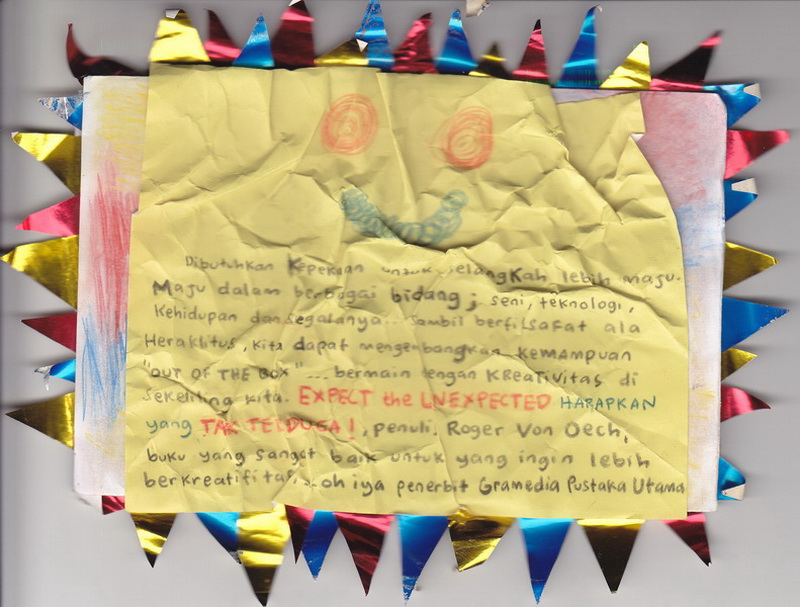 Dibutuhkan Kepekaan untuk selangkah lebih maju.
Maju dalam berbagai bidang; seni, teknologi,
Kehidupan dan segalanya... Sambil berfilsafat ala
Heraklitus, kita dapat mengembangkan KEMAMPUAN
"OUT OF THE BOX"... bermain dengan KReaTivitas di
sekeliling kita. EXPECT the UNEXPECTED HARAPKAN
yang TAK TERDUGA!, penulis Roger Von Oech,
buku yang sangat baik untuk yang ingin lebih
berkreatifitas, .. oh iya penerbit Gramedia Pustaka Utama